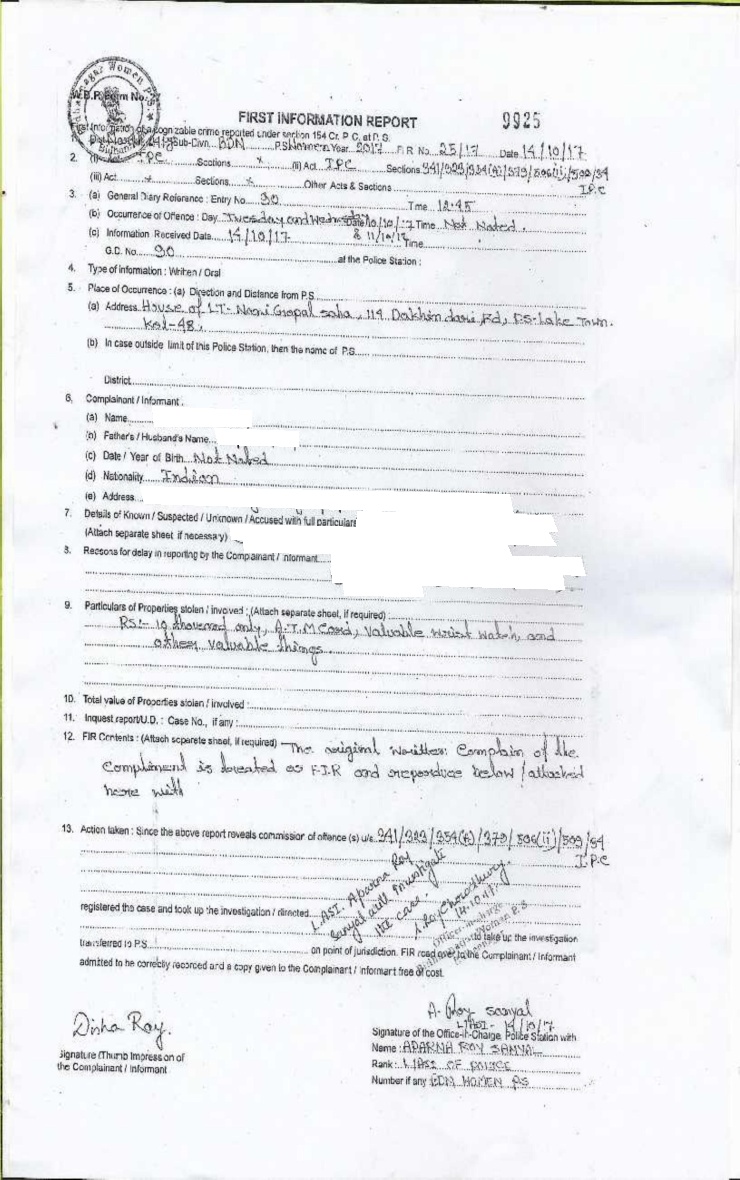 Women P.S.
W.B.P. Form No.
FIRST INFORMATION REPORT
9925
First Information of a cognizable crime reported under section 154 Cr. P. C. at P. S.
Sub-Divn. BDN P.S. Women Year 2017 F.I.R No. 25/17 Date 14/10/17
2. (i) Act IPC Sections x (ii) Act I.P.C Sections 341/323/354(A)/379/506(ii)/509/34
I.P.C
(iii) Act x Sections x Other Acts & Sections
3. (a) General Diary Reference : Entry No 90 Time 12:45
(b) Occurrence of Offence : Day Tuesday and Wednesday Date 10/10/17 Time Not Noted.
& 11/10/17
(c) Information Received Date 14/10/17 Time
G.D. No. 90 at the Police Station :
4. Type of Information : Written / Oral
5. Place of Occurrence : (a) Direction and Distance from P.S
(a) Address House of LT- Noni Gopal Saha, 114 Dakhin dari Rd, P.S- Lake Town.
Kol-48,
(b) In case outside limit of this Police Station, then the name of P.S
District
6. Complainant / Informant .
(a) Name
(b) Father's / Husband's Name
(c) Date / Year of Birth Not Noted
(d) Nationality Indian
(e) Address
7. Details of Known / Suspected / Unknown / Accused with full particulars
(Attach separate sheet if necessary)
8. Reasons for delay in reporting by the Complainant / Informant
9. Particulars of Properties stolen / involved : (Attach separate sheet, if required)
RS:- 10 thousand only, A.T.M Card, valuable wrist watch, and
other valuable things
10. Total value of Properties stolen / involved :
11. Inquest report/U.D. : Case No., if any :
12. FIR Contents : (Attach separate sheet, if required) The original written Complain of the
Complainent is treated as F.I.R and reproduce below / attached
here with
13. Action taken : Since the above report reveals commission of offence (s) u/s 341/323/354(A)/379/506(ii)/509/34
I.P.C
registered the case and took up the investigation / directed L.ASI. Aparna Roy
Sanyal will investigate
the case.
A. Roy Choudhury.
14.10.17
Officer-in-charge
Women P.S
to take up the investigation
transferred to P.S on point of jurisdiction. FIR read over to the Complainant / Informant
admitted to be correctly recorded and a copy given to the Complainant / Informant free of cost.
Disha Roy.
Signature /Thumb Impression of
the Complainant / Informant
A. Roy Sanyal
LASI- 14/10/17
Signature of the Office-in-Charge, Police Station with
Name : APARNA ROY SANYAL
Rank : L/ASI OF POLICE
Number if any BDN WOMEN PS